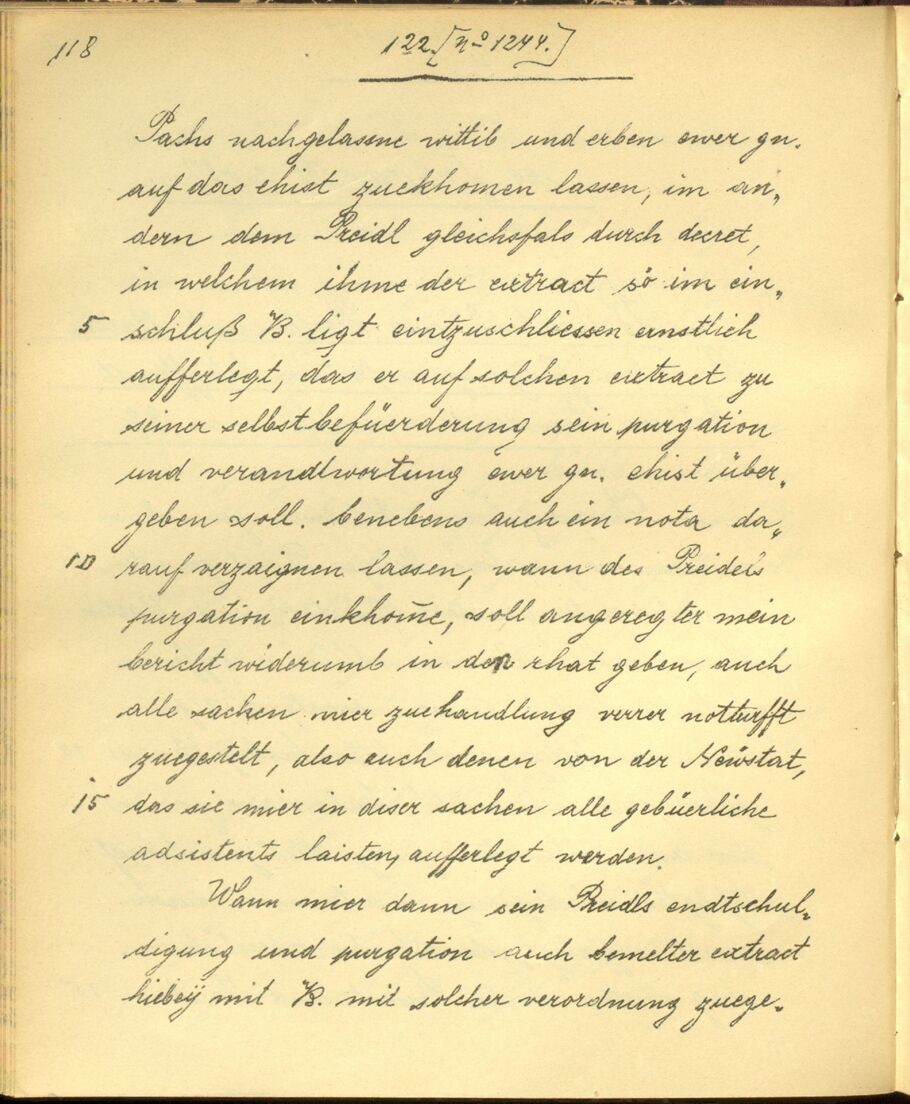 118
122. [No 1244.]
Pachs nachgelassne wittib und erben ewer gn.
auf das ehist zuekhomen lassen, im an„
dern dem Preidl gleichsfals durch decret,
in welchem ihme der extract so im ein„
5 schluß B. ligt eintzuschliessen ernstlich
aufferlegt, das er auf solchen extract zu
seiner selbst befüerderung sein purgation
und verandtwortung ewer gn. ehist über„
geben soll. benebens auch ein nota da„
10 rauf verzaignen lassen, wann des Preidels
purgation einkhom̄e, soll angeregter mein
bericht widerumb in den rhat geben, auch
alle sachen mier zuehandlung verrer notturfft
zuegestelt, also auch denen von der Neẅstat,
15 das sie mier in diser sachen alle gebüerliche
adsistents laisten, aufferlegt werden.
Wann mier dann sein Preidls endtschul„
digung und purgation auch bemelter extract
hiebeÿ mit B. mit solcher verordnung zuege„